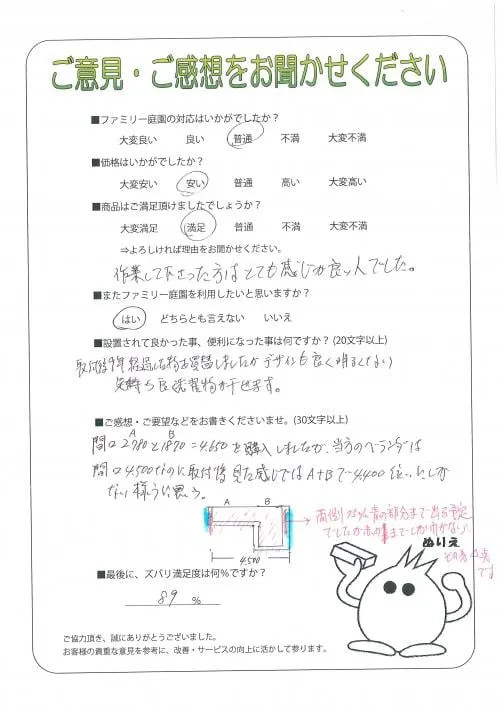 ご意見・ご感想をお聞かせください
■ファミリー庭園の対応はいかがでしたか？
大変良い 良い 普通 不満 大変不満
■価格はいかがでしたか？
大変安い 安い 普通 高い 大変高い
■商品はご満足頂けましたでしょうか？
大変満足 満足 普通 不満 大変不満
⇒よろしければ理由をお聞かせください。
作業して下さった方はとても感じが良い人でした。
■またファミリー庭園を利用したいと思いますか？
はい どちらとも言えない いいえ
■設置されて良かった事、便利になった事は何ですか？(20文字以上)
取付後9年経過した物を買替しましたがデザインも良く明るくなり
気持ち良く洗濯物が干せます。
■ご感想・ご要望などをお書きくださいませ。(30文字以上)
A B
間口2780と1870=4.650を購入しましたが、当方のベランダは
間口4.500なのに取付後見た感じではA+Bで4.400位にしか
ない様に思う。
A B
4.500
両側 青の部分まで出る予定
でしたが赤の までしか
その為 点
です
ぬりえ
■最後に、ズバリ満足度は何％ですか？
89 %
ご協力頂き、誠にありがとうございました。
お客様の貴重な意見を参考に、改善・サービスの向上に活かして参ります。